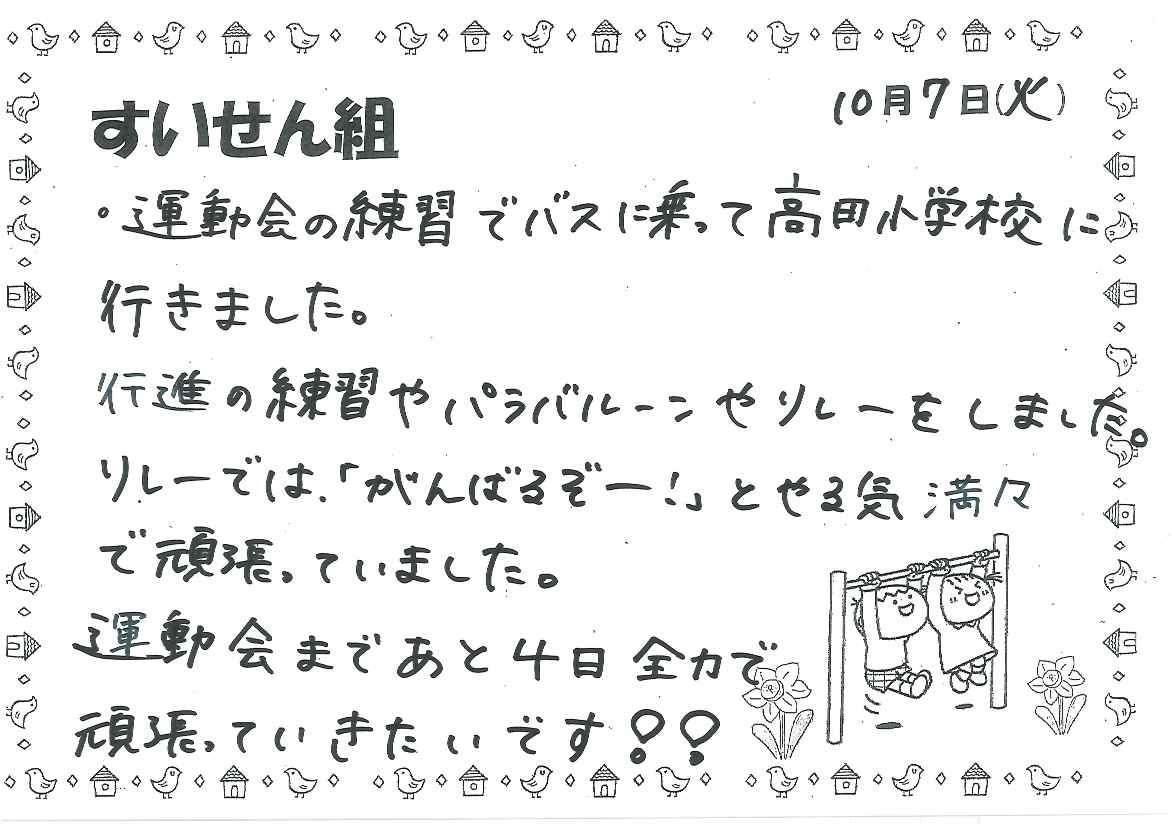 10月7日(火)
すいせん組
・運動会の練習でバスに乗って高田小学校に
行きました。
行進の練習やパラバルーンやリレーをしました。
リレーでは、「がんばるぞー!」とやる気満々
で頑張っていました。
運動会まであと4日全力で
頑張っていきたいです!!